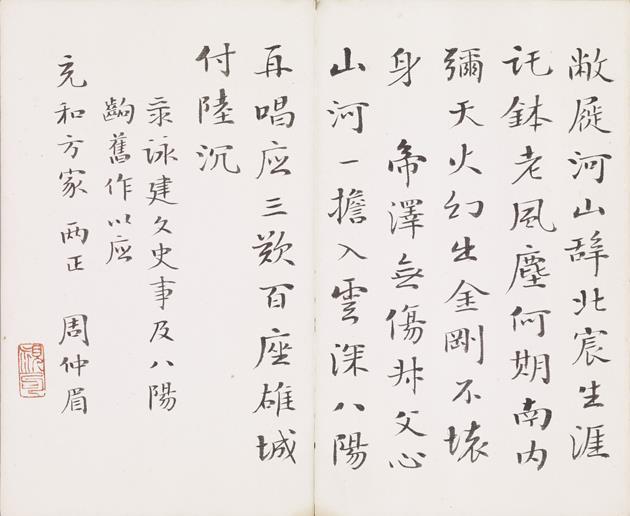 敝屣河山辭北宸生涯
託鉢老風塵何期南内
彌天火幻出金剛不壞
身 帝澤無傷叔父心
山河一擔入雲深八陽
再唱应三歎百座雄城
付陸沉
录詠建文史事及八陽
齣舊作以应
充和方家 两正 周仲眉